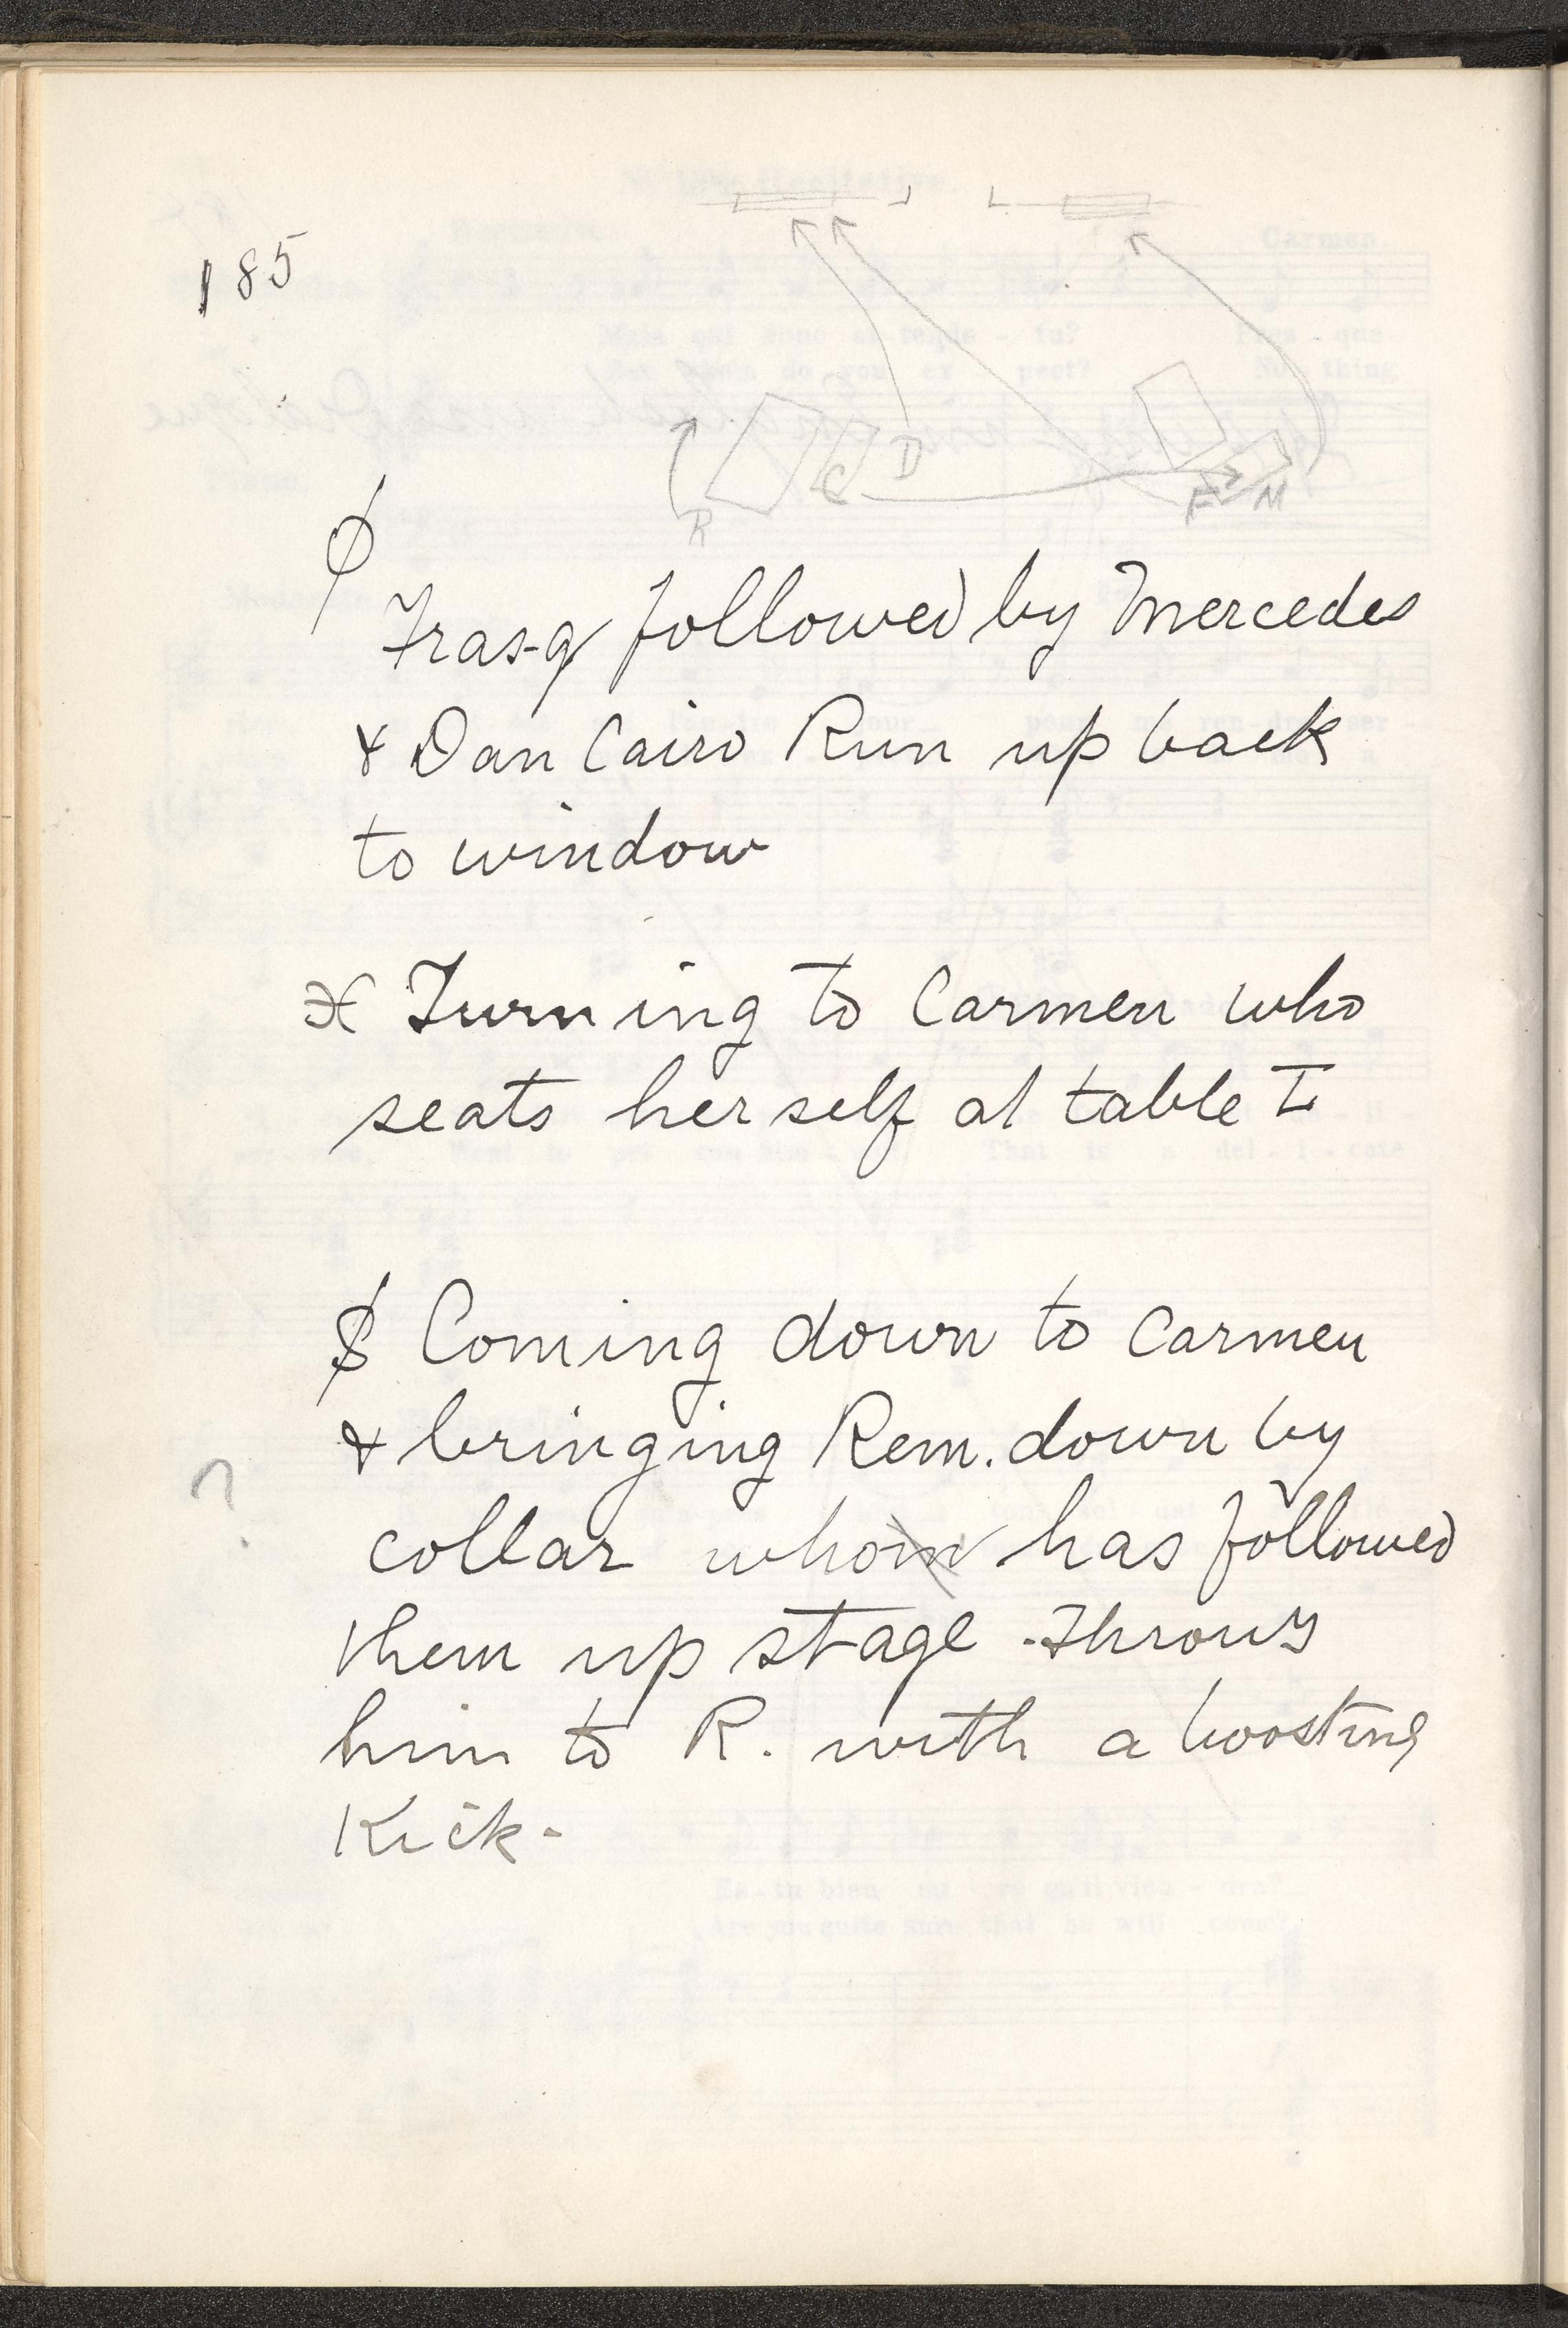 185
R C D F M
φ
Frasq followed by Mercedes
& Dan Cairo Run up back
to window
Turning to Carmen who
seats herself at table I
$ Coming down to Carmen
& bringing Rem. down by
? collar whom has followed
them up stage. Throws
him to R. with a boosting
Kick-